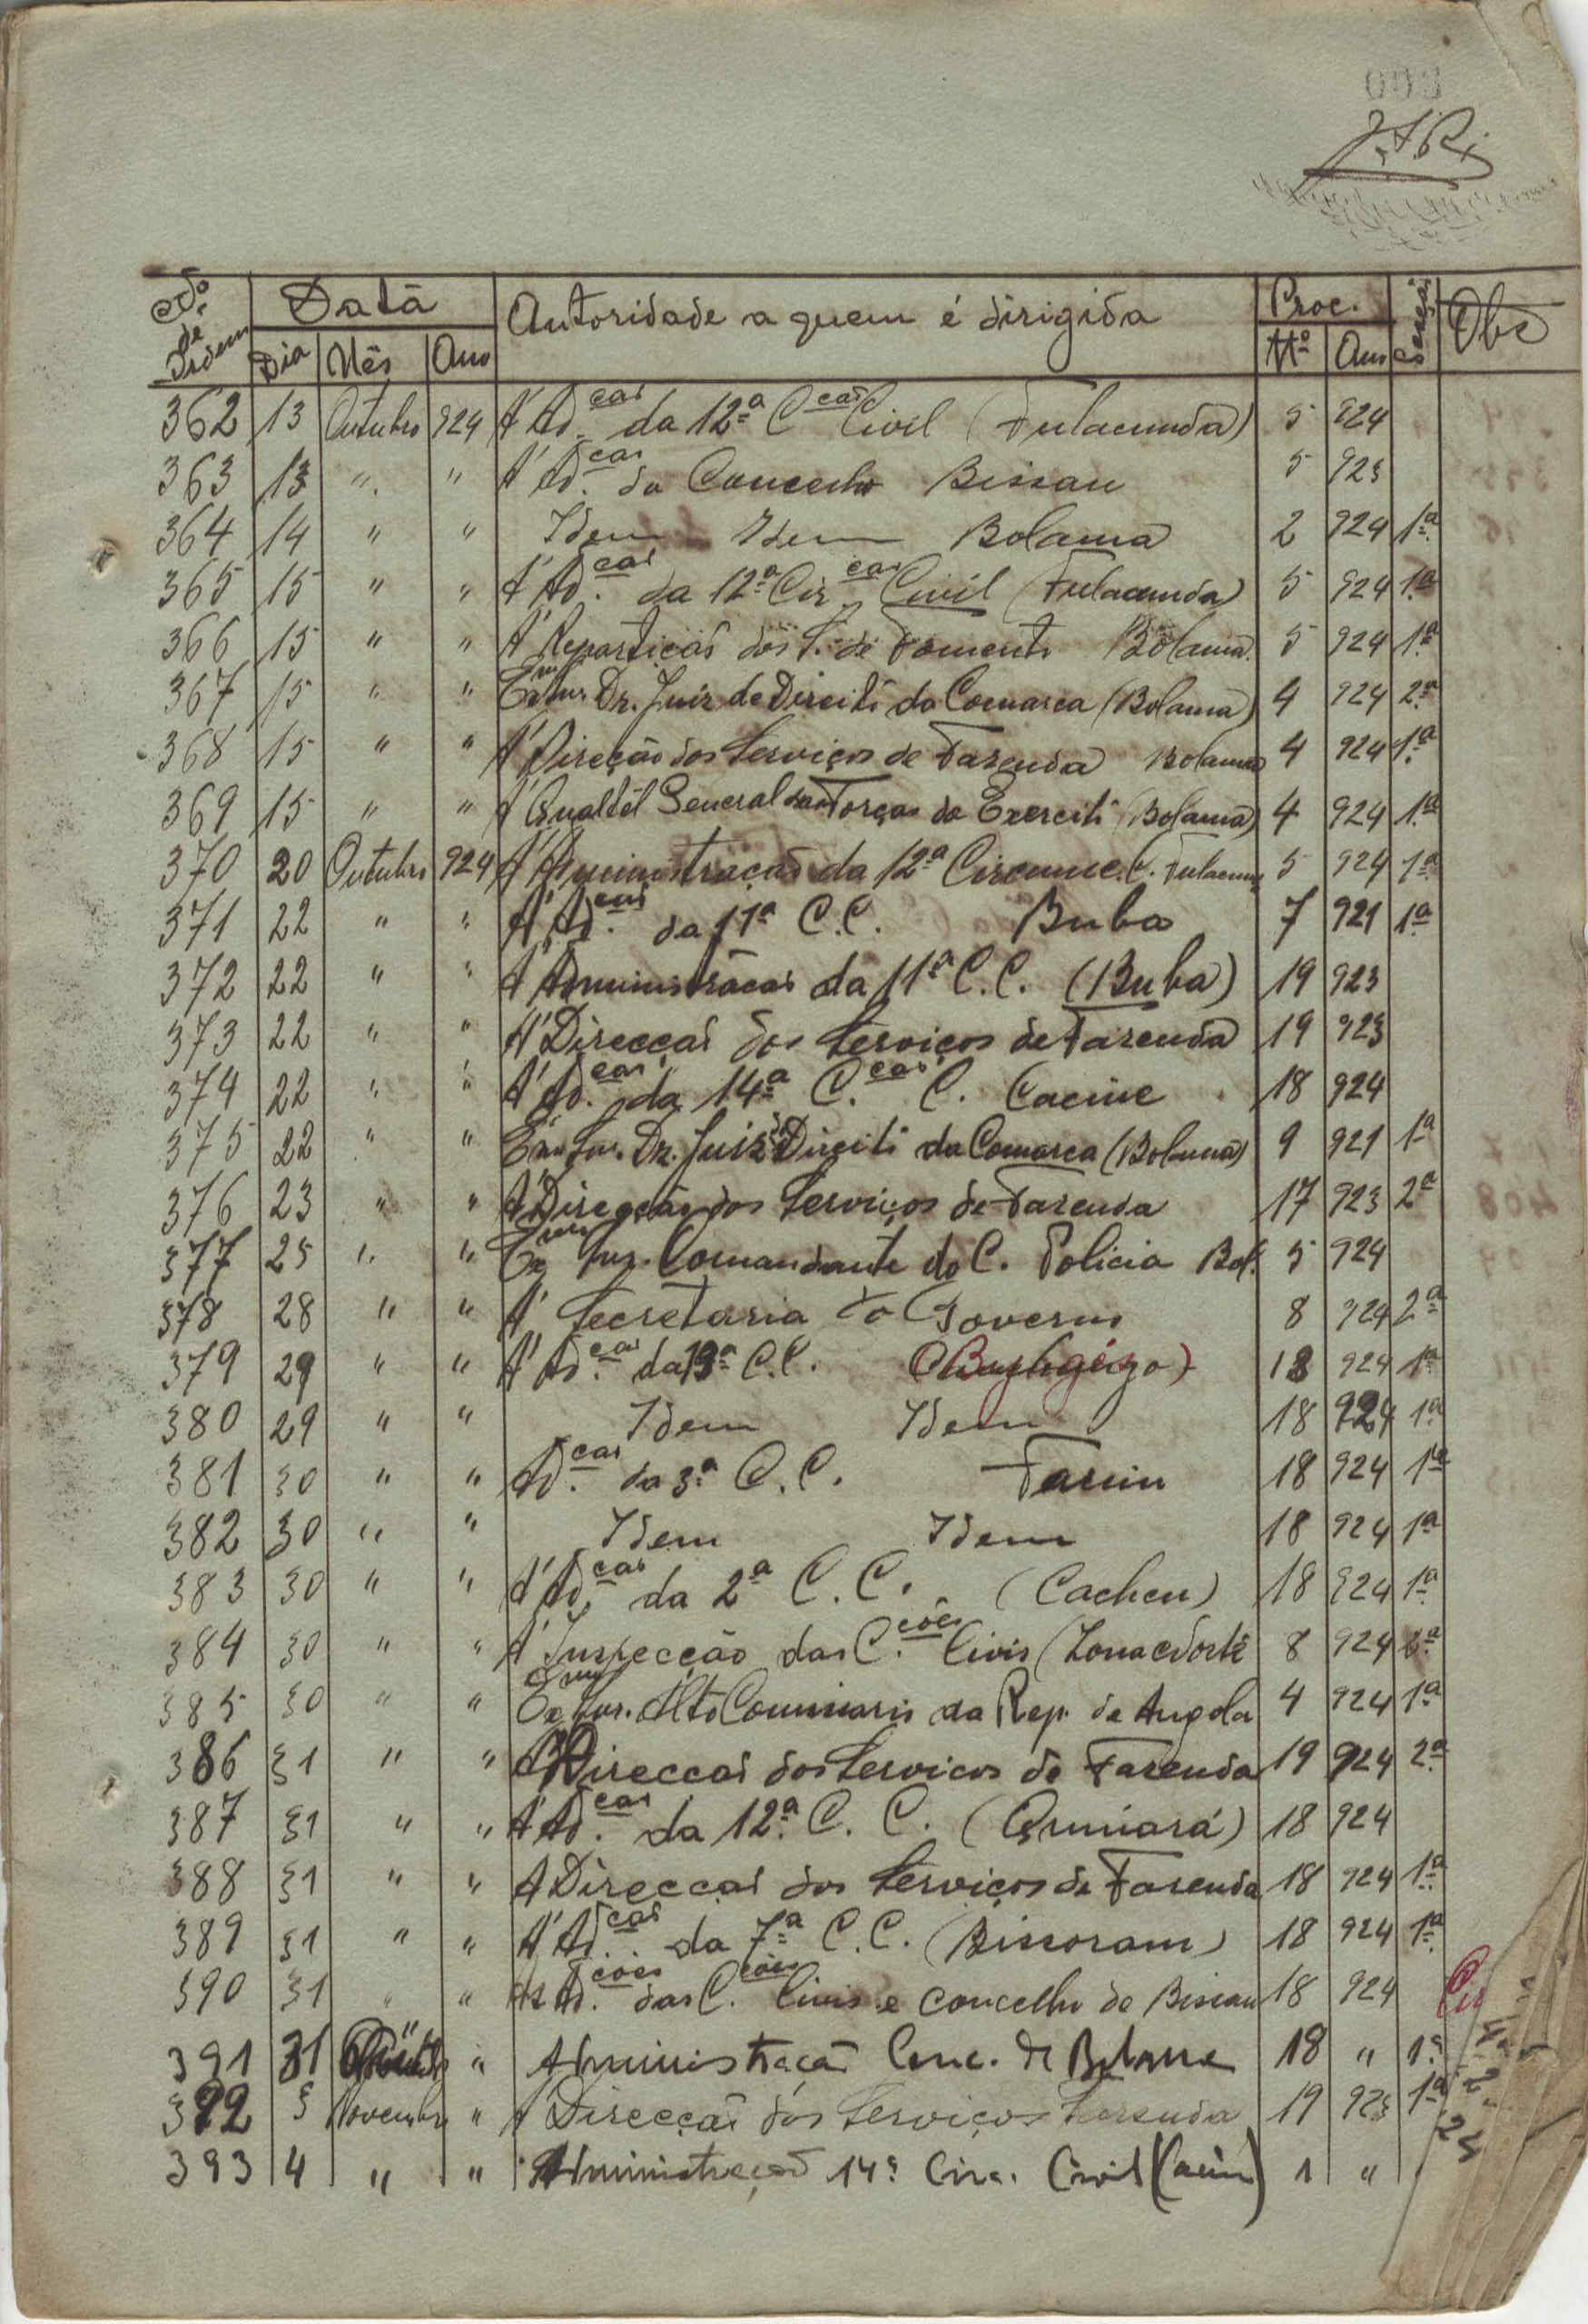 Nº de Ordem | Data | Autoridade a quem é dirigida | Proc. | Secção | Obs
Dia | Mês | Ano | Nº | Ano
362 13 Outubro 924 A' Ad.ção da 12ª C.ção Civil (Fulacunda) 5 924
363 13 " " A' Ad.ção do Concelho Bissau 5 923
364 14 " " Idem Idem Bolama 2 924 1ª
365 15 " " A' Ad.ção da 12ª Cir.ção Civil (Fulacunda) 5 924 1ª
366 15 " " A' Repartição dos S. de Fomento Bolama. 5 924 1ª
367 15 " " Exmo Snr. Dr. Juiz de Direito da Comarca (Bolama) 4 924 2ª
368 15 " " A' Direção dos Serviços de Fazenda Bolama 4 924 1ª
369 15 " " A' Qualtel General das Forças do Exercito (Bolama) 4 924 1ª
370 20 Outubro 924 A' Administração da 12ª Circunsc. C. Fulacun 5 924 1ª
371 22 " " A' Ad.ção da 11ª C.C. Buba 7 921 1ª
372 22 " " A' Administração da 11ª C.C. (Buba) 19 923
373 22 " " A' Direcção dos Serviços de Fazenda 19 923
374 22 " " A' Ad.ção da 14ª C.ção C. Cacine 18 924
375 22 " " Exmo Snr. Dr. Juiz de Direito da Comarca (Bolama) 9 921 1ª
376 23 " " A' Direcção dos Serviços de Fazenda 17 923 2ª
377 25 " " Exmo Snr. Comandante do C. Policia Bol. 5 924
378 28 " " A' Secretaria do Governo 8 924 2ª
379 29 " " A' Ad.ção da 13ª C.C. 18 924 1ª
380 29 " " Idem Idem 18 924 1ª
381 30 " " Ad.ção da 3ª C.C. Farim 18 924 1ª
382 30 " " Idem Idem 18 924 1ª
383 30 " " A' Ad.ção da 2ª C.C. (Cacheu) 18 924 1ª
384 30 " " A' Inspecção das C.ções Civis (Zona Norte 8 924 2ª
385 30 " " Exmo Snr. Alto Comissario da Rep. de Angola 4 924 1ª
386 31 " " A' Direcção dos Serviços de Fazenda 19 924 2ª
387 31 " " A' Ad.ção da 12ª C.C. (Quinará) 18 924
388 31 " " A Direcção dos Serviços de Fazenda 18 924 1ª
389 31 " " A' Ad.ção da 7ª C.C. (Bissoram) 18 924 1ª
390 31 " " As Ad.ções das C.ções Civis e Concelho de Bissau 18 924
391 31 " " Administração Conc. de Bolama 18 " 1ª
392 3 Novembro " A' Direcção dos Serviços Fazenda 19 923 1ª
393 4 " " Administração 14ª Circ. Civil (Cacine) 1 "